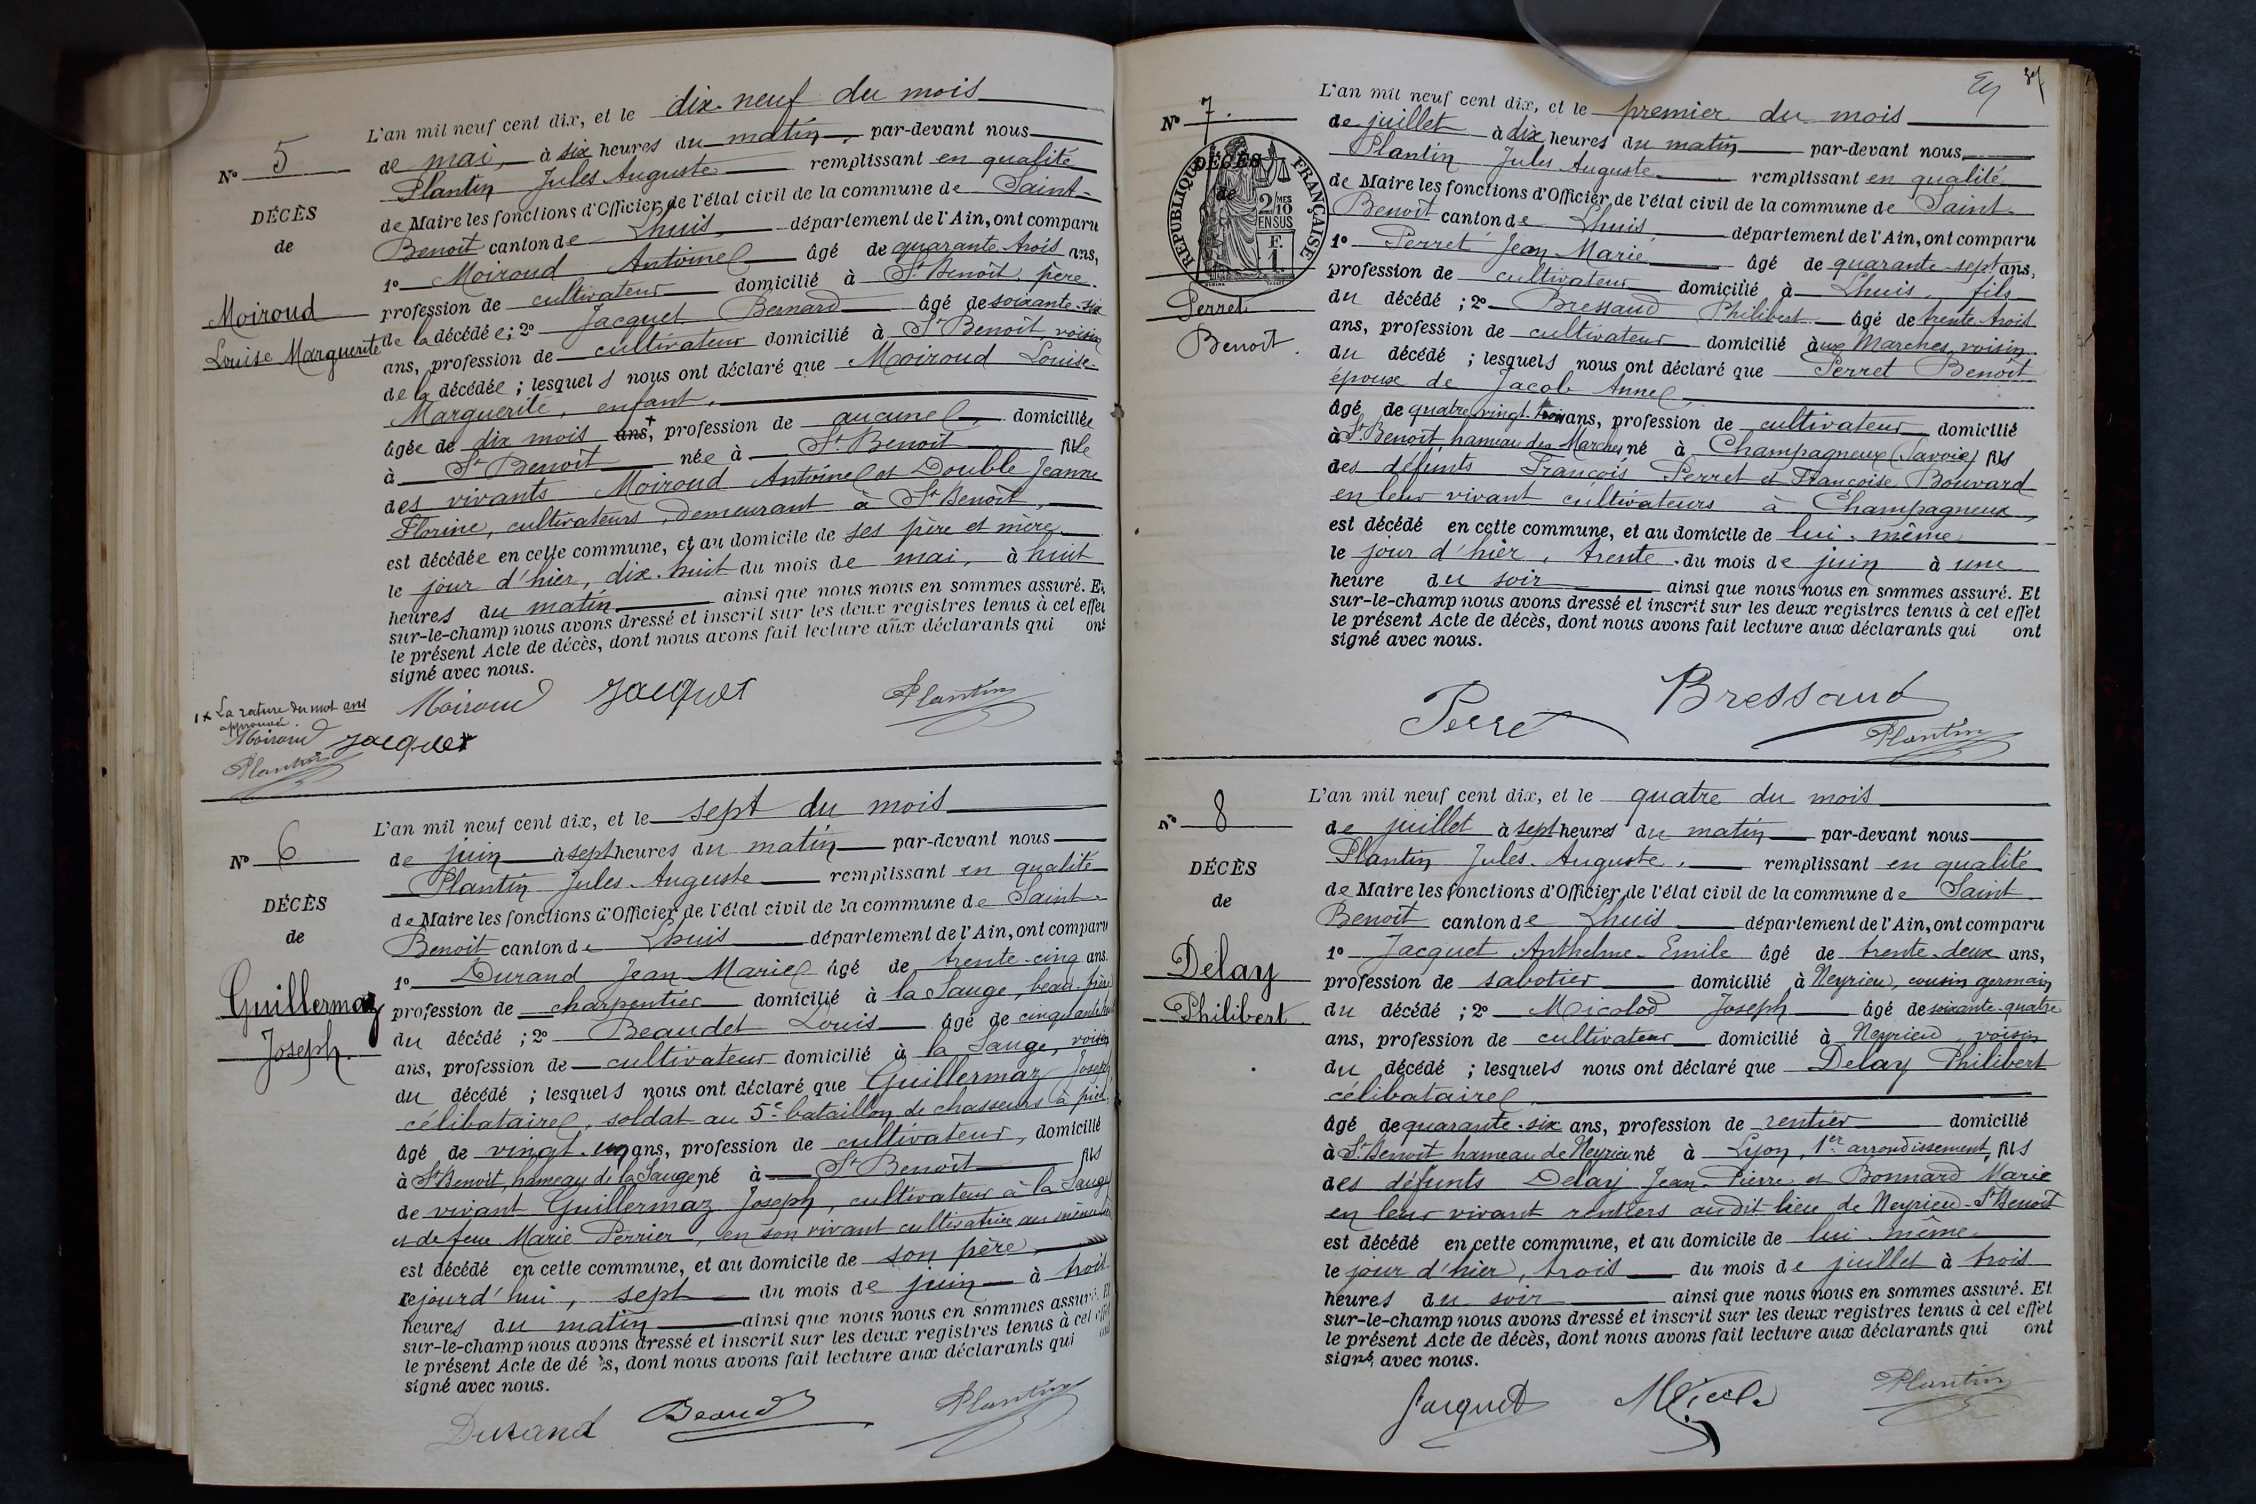 L'an mil neuf cent dix, et le dix-neuf du mois
N° 5
de mai, à six heures du matin, par-devant nous
Plantin Jules Auguste remplissant en qualité
DÉCÈS
de Maire les fonctions d'Officier de l'état civil de la commune de Saint-
de
Benoît canton de Lhuis département de l'Ain, ont comparu
1° Moiroud Antoine âgé de quarante trois ans,
profession de cultivateur domicilié à St Benoît, père
Moiroud
de la décédée ; 2° Jacquet Bernard âgé de soixante-six
Louise Marguerite
ans, profession de cultivateur domicilié à St Benoît voisin
de la décédée ; lesquels nous ont déclaré que Moiroud Louise-
Marguerite, enfant,
âgée de dix mois ans, profession de aucune, domiciliée
à St Benoît née à St Benoît fille
des vivants Moiroud Antoine et Double Jeanne
Florine, cultivateurs, demeurant à St Benoît,
est décédée en cette commune, et au domicile de ses père et mère
le jour d'hier, dix-huit du mois de mai, à huit
heures du matin ainsi que nous nous en sommes assuré. Et
sur-le-champ nous avons dressé et inscrit sur les deux registres tenus à cet effet
le présent Acte de décès, dont nous avons fait lecture aux déclarants qui ont
signé avec nous.
Moiroud Jacquet Plantin
1 x La rature du mot ans
approuvé.
Moiroud Jacquet
Plantin
L'an mil neuf cent dix, et le sept du mois
N° 6
de juin à sept heures du matin par-devant nous
Plantin Jules Auguste remplissant en qualité
DÉCÈS
de Maire les fonctions d'Officier de l'état civil de la commune de Saint-
de
Benoît canton de Lhuis département de l'Ain, ont comparu
1° Durand Jean Marie âgé de trente-cinq ans.
Guillermaz
profession de charpentier domicilié à la Sauge, beau-frère
Joseph.
du décédé ; 2° Beaudet Louis âgé de
ans, profession de cultivateur domicilié à la Sauge, voisin
du décédé ; lesquels nous ont déclaré que Guillermaz Joseph
célibataire, soldat au 5e bataillon de chasseurs à pied,
âgé de vingt-un ans, profession de cultivateur, domicilié
à St Benoît, hameau de la Sauge né à St Benoît fils
de vivant Guillermaz Joseph, cultivateur à la Sauge
et de feue Marie Perrier, en son vivant cultivatrice au même lieu
est décédé en cette commune, et au domicile de son père,
cejourd'hui, sept du mois de juin à trois
heures du matin ainsi que nous nous en sommes assuré. Et
sur-le-champ nous avons dressé et inscrit sur les deux registres tenus à cet effet
le présent Acte de décès, dont nous avons fait lecture aux déclarants qui ont
signé avec nous.
Durand Beaudet Plantin
L'an mil neuf cent dix, et le premier du mois
N° 7.
de juillet à dix heures du matin par-devant nous
Plantin Jules Auguste remplissant en qualité
DÉCÈS
de
RÉPUBLIQUE FRANÇAISE
2/10 MES
EN SUS
F.
1.
de Maire les fonctions d'Officier de l'état civil de la commune de Saint-
Benoît canton de Lhuis département de l'Ain, ont comparu
1° Perret Jean Marie âgé de quarante-sept ans,
profession de cultivateur domicilié à Lhuis, fils
Perret
du décédé ; 2° Bressaud Philibert âgé de trente-trois
Benoît.
ans, profession de cultivateur domicilié aux Marches, voisin
du décédé ; lesquels nous ont déclaré que Perret Benoît
époux de Jacob Anne,
âgé de quatre-vingt-trois ans, profession de cultivateur domicilié
à St Benoît hameau des Marches né à Champagneux (Savoie) fils
des défunts François Perret et Françoise Bouvard
en leur vivant cultivateurs à Champagneux,
est décédé en cette commune, et au domicile de lui-même
le jour d'hier, trente du mois de juin à une
heure du soir ainsi que nous nous en sommes assuré. Et
sur-le-champ nous avons dressé et inscrit sur les deux registres tenus à cet effet
le présent Acte de décès, dont nous avons fait lecture aux déclarants qui ont
signé avec nous.
Perret Bressaud
Plantin
L'an mil neuf cent dix, et le quatre du mois
N° 8
de juillet à sept heures du matin par-devant nous
Plantin Jules Auguste, remplissant en qualité
DÉCÈS
de Maire les fonctions d'Officier de l'état civil de la commune de Saint
de
Benoît canton de Lhuis département de l'Ain, ont comparu
1° Jacquet Anthelme-Emile âgé de trente-deux ans,
Delay
profession de sabotier domicilié à Neyrieu, cousin germain
Philibert
du décédé ; 2° Micolod Joseph âgé de soixante-quatre
ans, profession de cultivateur domicilié à Neyrieu voisin
du décédé ; lesquels nous ont déclaré que Delay Philibert
célibataire,
âgé de quarante-six ans, profession de rentier domicilié
à St Benoît hameau de Neyrieu né à Lyon, 1er arrondissement, fils
des défunts Delay Jean-Pierre et Bonnard Marie
en leur vivant rentiers audit lieu de Neyrieu-St Benoît
est décédé en cette commune, et au domicile de lui-même
le jour d'hier, trois du mois de juillet à trois
heures du soir ainsi que nous nous en sommes assuré. Et
sur-le-champ nous avons dressé et inscrit sur les deux registres tenus à cet effet
le présent Acte de décès, dont nous avons fait lecture aux déclarants qui ont
signé avec nous.
Jacquet Plantin